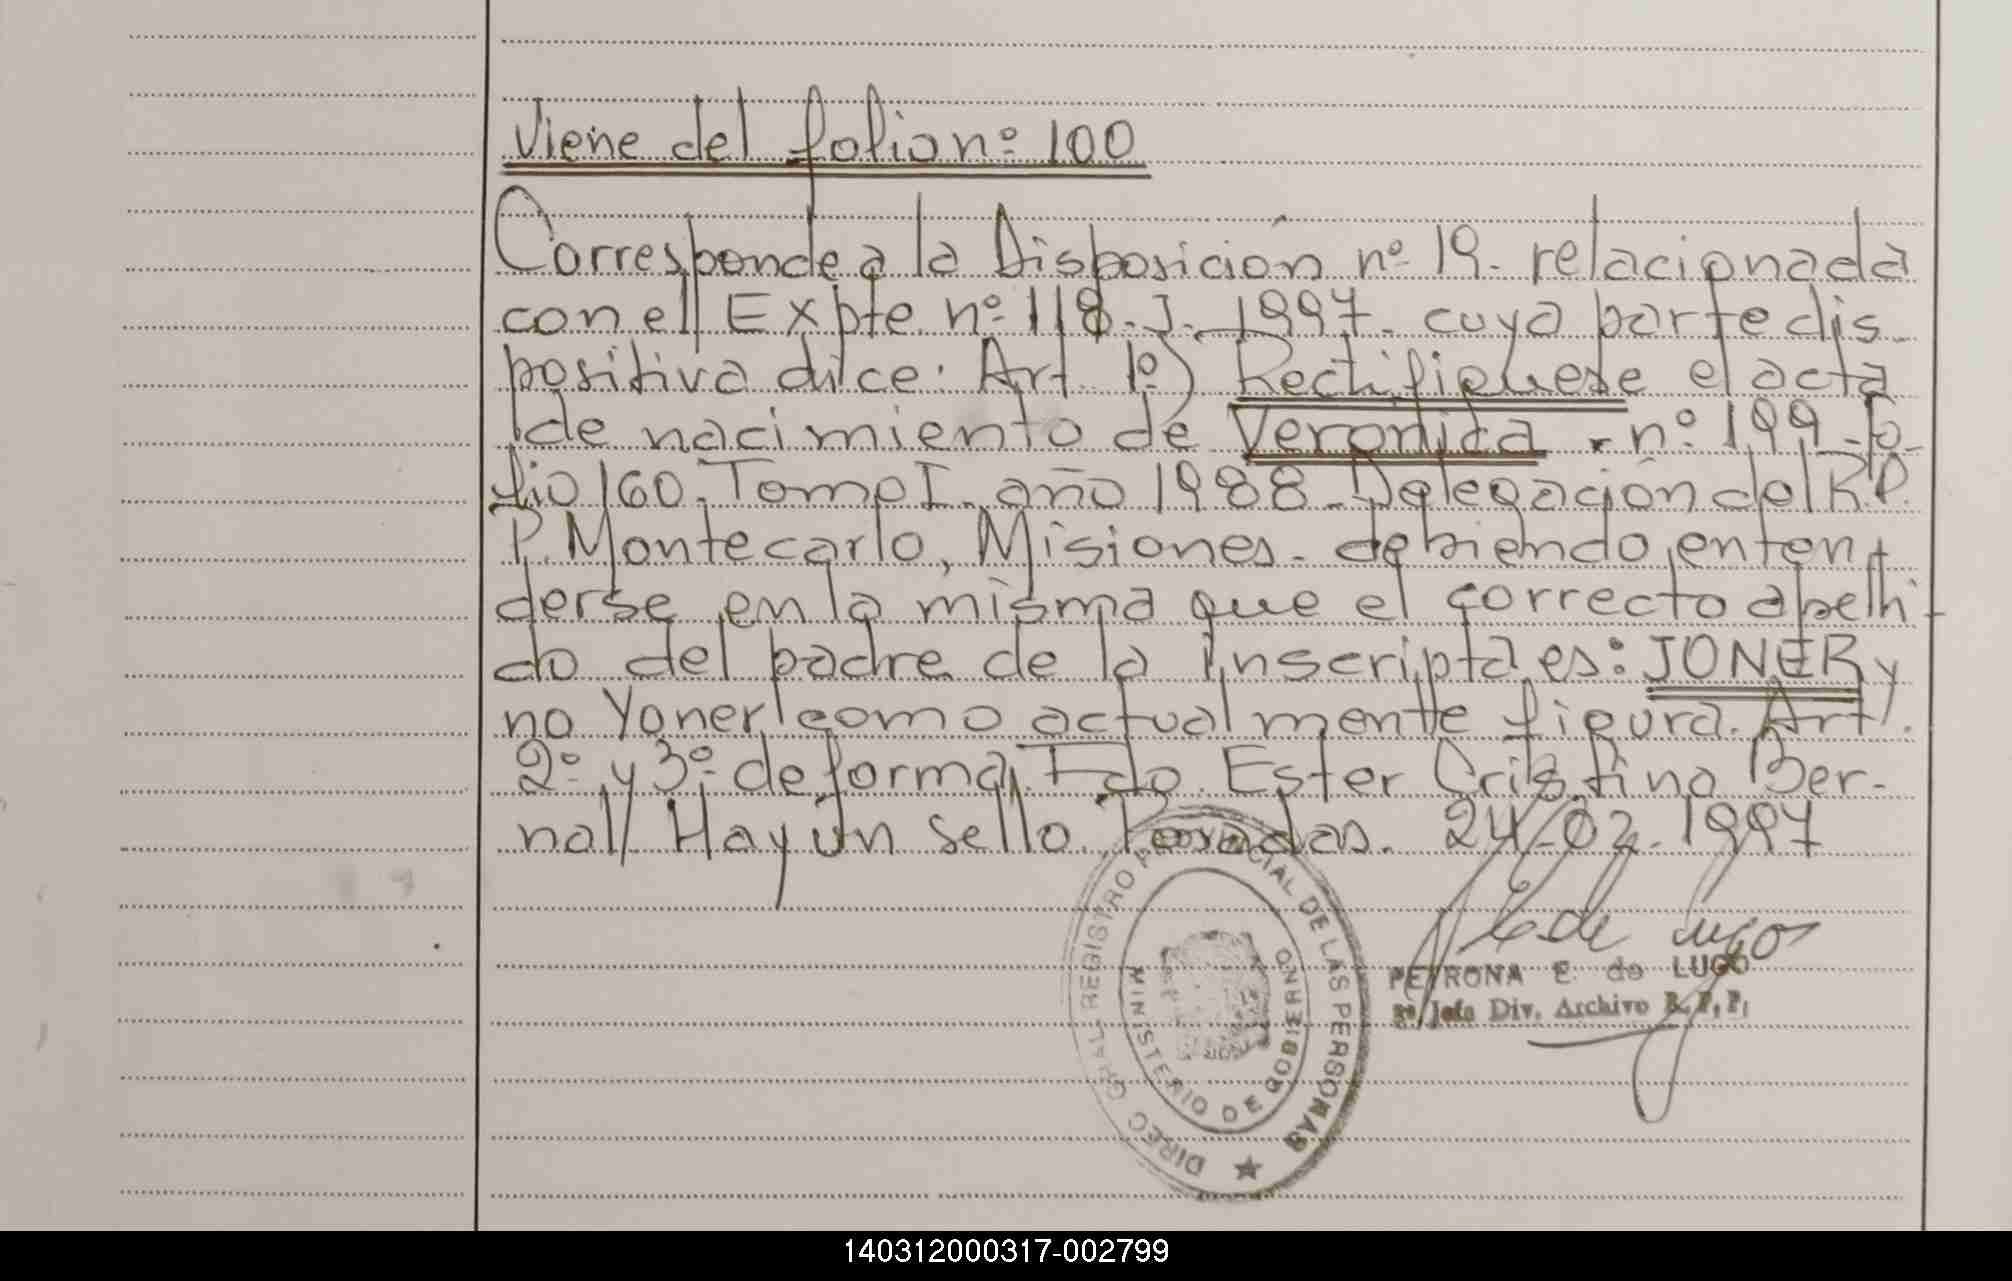 Viene del folio nº 100
Corresponde a la Disposición nº 19. relacionada
con el Expte. nº 118. J. 1997. cuya parte dis-
positiva dice: Art. 1º) Rectifiquese el acta
de nacimiento de Veronica. nº 199. fo-
lio 160. Tomo I. año 1988. Delegación del R.P.
P. Montecarlo, Misiones. debiendo enten-
derse en la misma que el correcto apelli-
do del padre de la inscripta es: JONER y
no Yoner como actualmente figura. Art.
2º y 3º de forma. Fdo. Ester Cristina Ber-
nal/ Hay un sello. Posadas. 24/02. 1997
DIREC. GRAL REGISTRO PROVINCIAL DE LAS PERSONAS
MINISTERIO DE GOBIERNO
PETRONA E. de LUGO
2º Jefe Div. Archivo R. P. P.
140312000317-002799